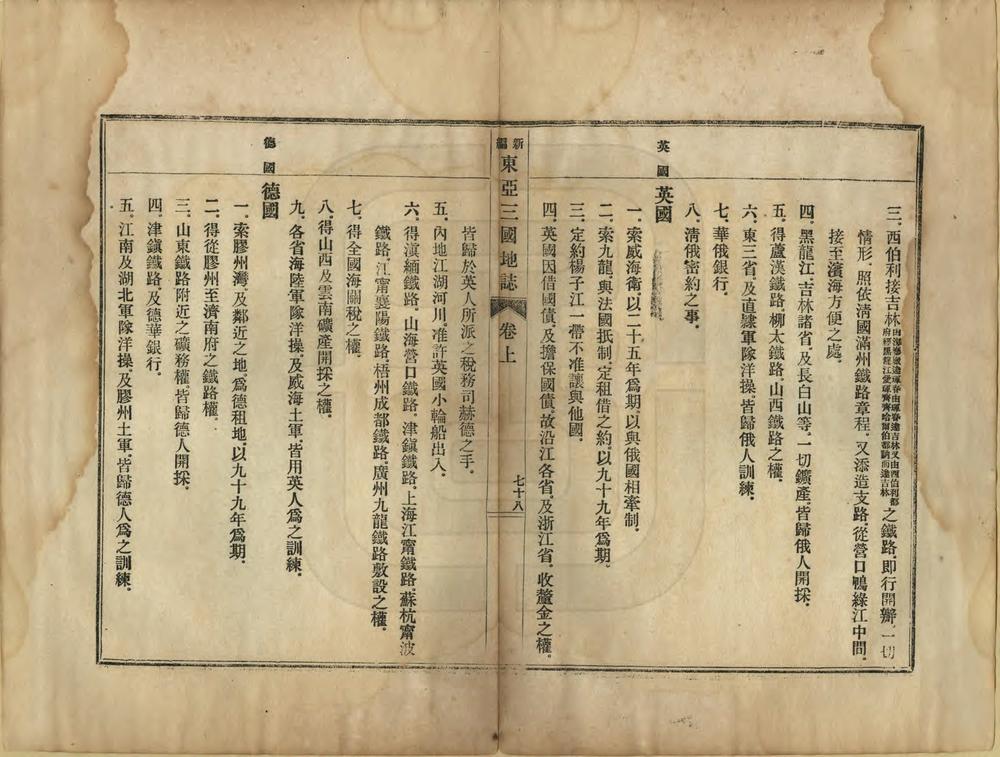 三、西伯利接吉林之鐵路、即行開辦、一切
情形、照依淸國滿州鐵路章程、又添造支路、從營口鴨綠江中間、
接至濱海方便之處、
四、黑龍江、吉林諸省、及長白山等、一切鑛產、皆歸俄人開採、
五、得蘆漢鐵路、柳太鐵路、山西鐵路之權、
六、東三省、及直隸軍隊洋操、皆歸俄人訓練、
七、華俄銀行、
八、淸俄密約之事、
英國
英國
一、索威海衛、以二十五年爲期、以與俄國相牽制、
二、索九龍、與法國抵制、定租借之約、以九十九年爲期、
三、定約楊子江一帶不准讓與他國、
四、英國因借國債、及擔保國債、故沿江各省、及浙江省、收釐金之權、
新編
東亞三國地誌
卷上
七十八
皆歸於英人所派之稅務司赫德之手、
五、內地江湖河川、准許英國小輪船出入、
六、得滇緬鐵路、山海營口鐵路、津鎭鐵路、上海江甯鐵路、蘇杭甯波
鐵路、江甯襄陽鐵路、梧州成都鐵路、廣州九龍鐵路敷設之權、
七、得全國海關稅之權、
八、得山西及雲南礦產開採之權、
九、各省海陸軍隊洋操、及威海土軍、皆用英人爲之訓練、
德國
德國
一、索膠州灣、及鄰近之地、爲德租地、以九十九年爲期、
二、得從膠州至濟南府之鐵路權、
三、山東鐵路附近之礦務權、皆歸德人開採、
四、津鎭鐵路、及德華銀行、
五、江南及湖北軍隊洋操、及膠州土軍、皆歸德人爲之訓練、